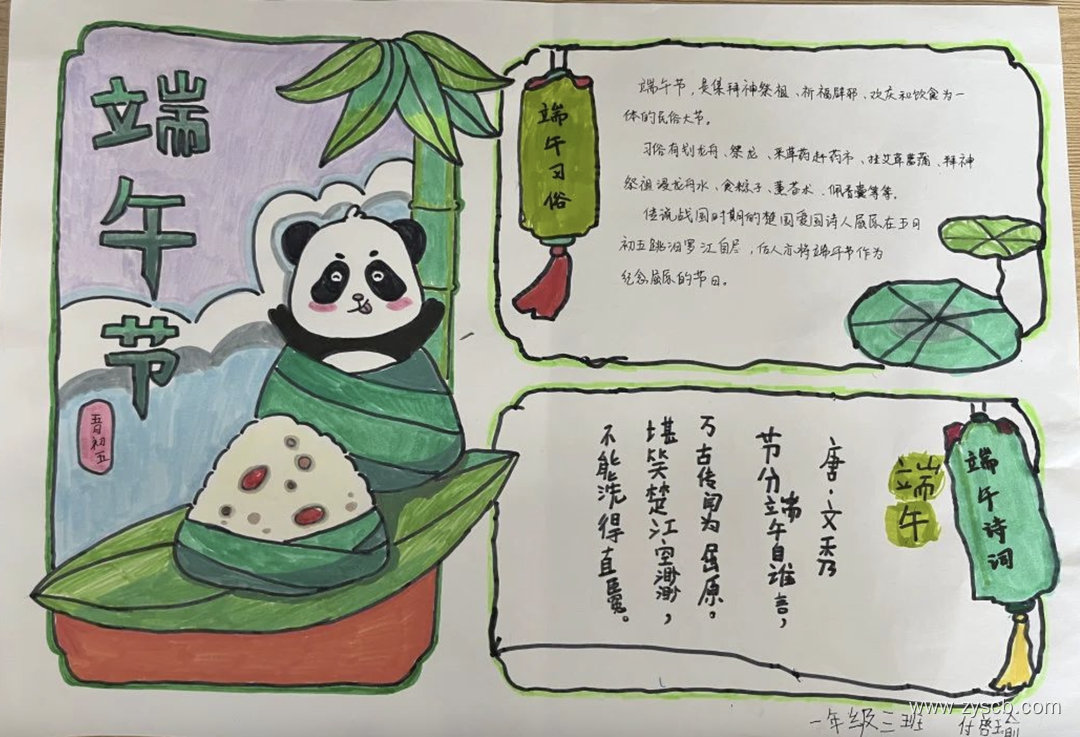 端午节
五月初五
端午习俗
端午节，是集拜神祭祖、祈福辟邪、欢庆和饮食为一
体的民俗大节。
习俗有划龙舟、祭龙、采草药赶药市、挂艾草菖蒲、拜神
祭祖浸龙舟水、食粽子、薰苍术、佩香囊等等。
传说战国时期的楚国爱国诗人屈原在五月
初五跳汨罗江自尽，后人亦将端午节作为
纪念屈原的节日。
端午诗词
端午
唐·文秀
节分端午自谁言，
万古传闻为屈原。
堪笑楚江空渺渺，
不能洗得直臣冤。
一年级三班
www.zyscb.com